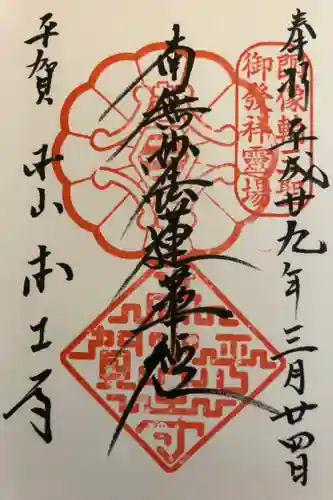 奉拝 平成廿九年三月廿四日
御發祥靈場
南無妙法蓮華経
平賀 本山 本土寺